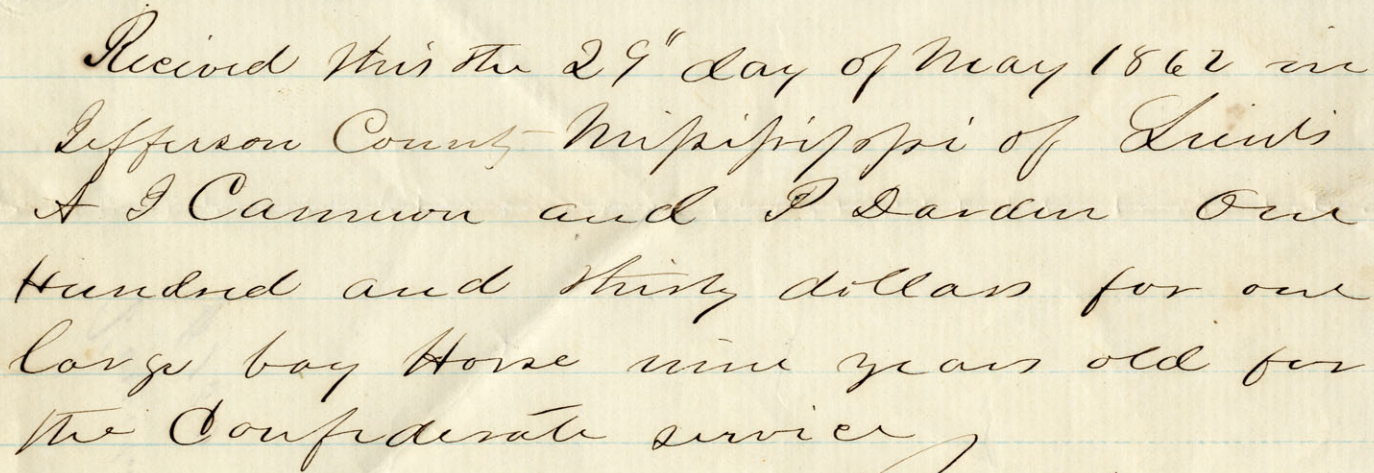 Recieved this the 29" day of May 1862 in
Jefferson County Missississppi of Lieuts
A J Cannon and P Darden One
Hundred and thirty dollars for one
large bay Horse nine years old for
the Confederate service